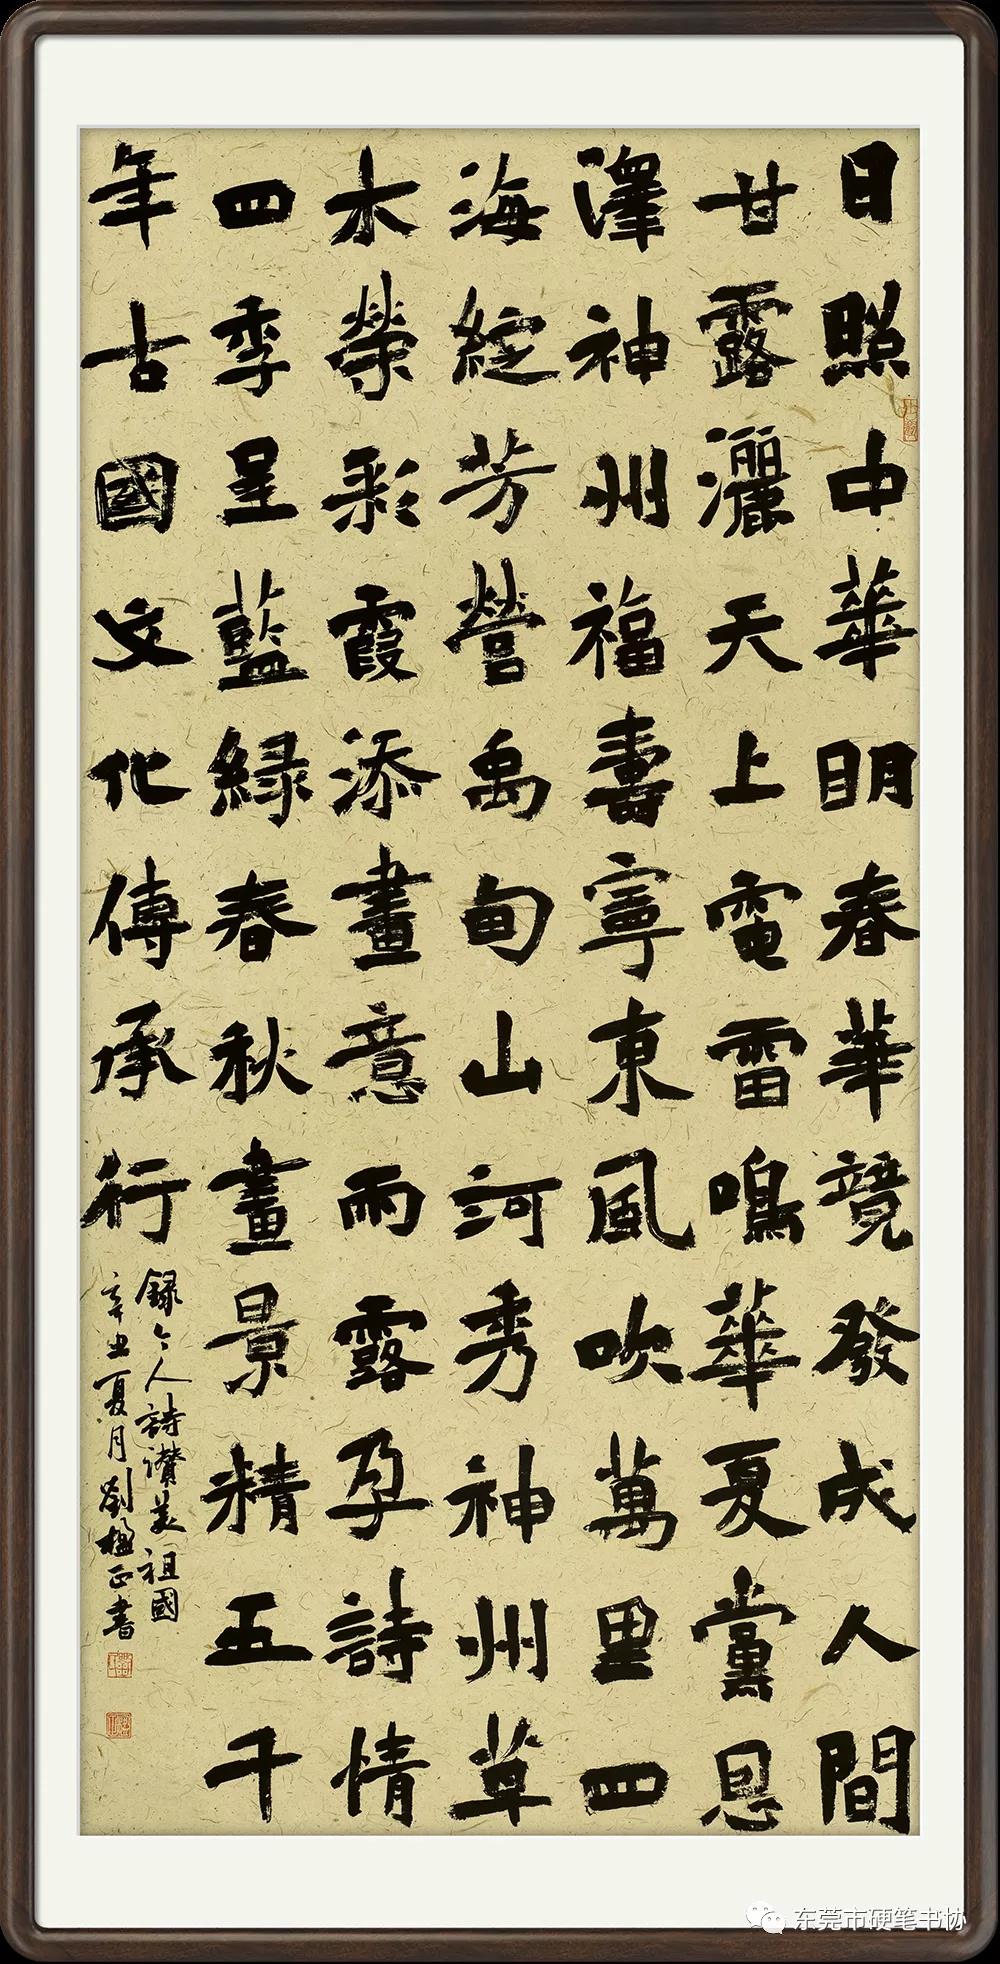 日照中華明春華競發成人間
甘露灑天上電雷鳴華夏黨恩
澤神州福壽寧東風吹萬里四
海綻芳營禹甸山河秀神州草
木榮彩霞添畫意雨露孕詩情
四季呈藍綠春秋畫景精五千
年古國文化傳承行
錄今人詩讚美祖國
辛丑夏月劉楹正書
东莞市硬笔书协